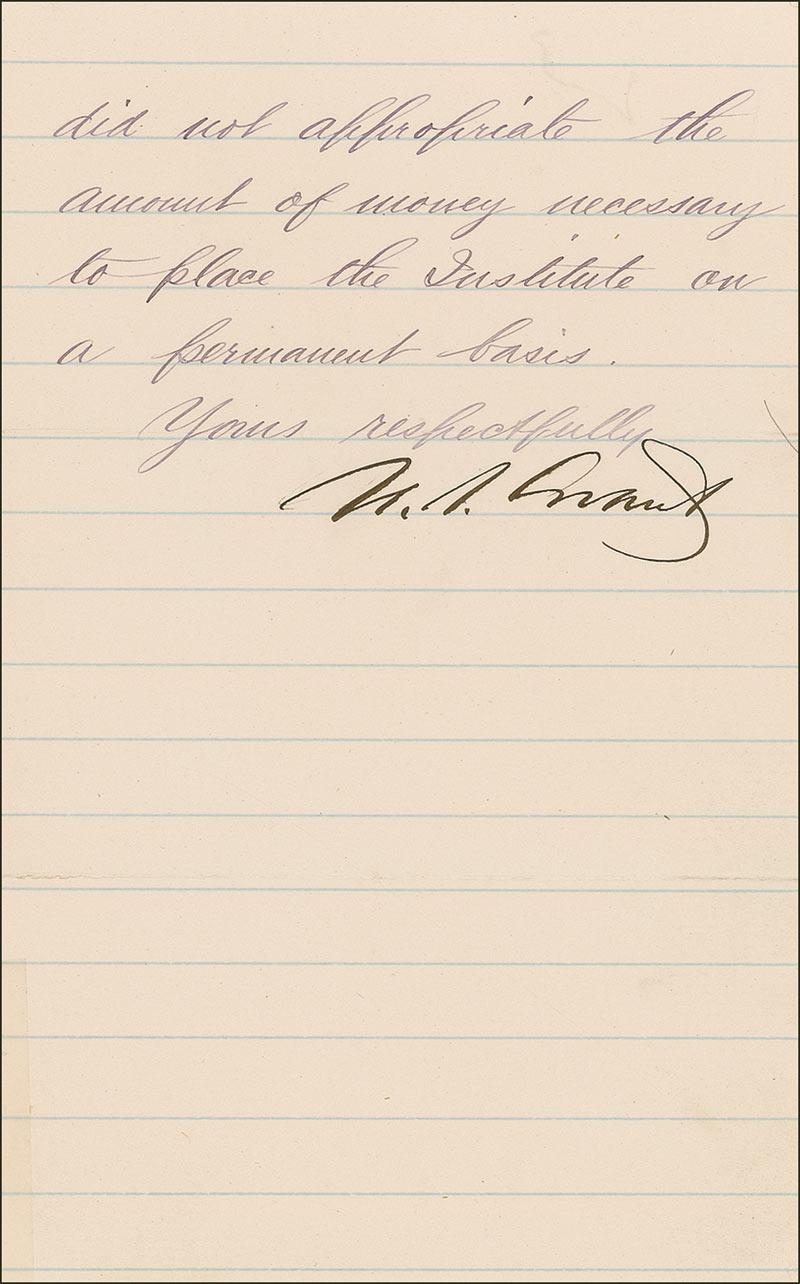 did not appropriate the
amount of money necessary
to place the Institute on
a permanent basis.
Yours respectfully
U. S. Grant